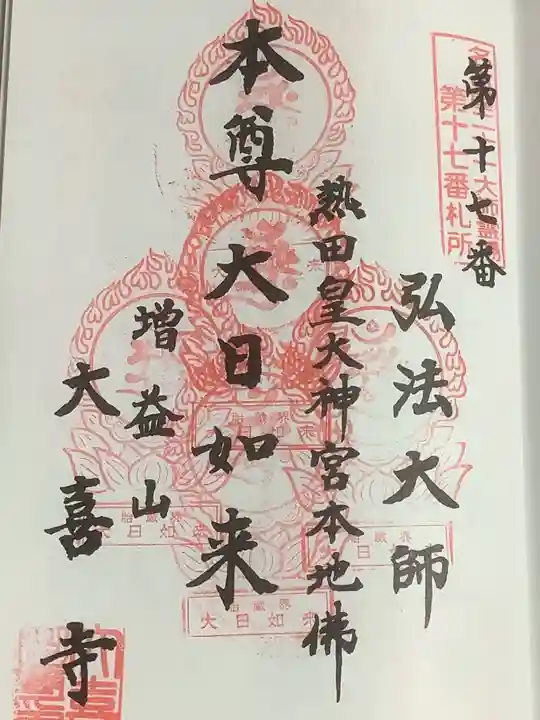 第十七番
第十七番札所
弘法大師
熱田皇大神宮本地佛
本尊大日如来
増益山
大喜寺
胎蔵界
大日如来
胎蔵界
大日如来
胎蔵界
大日如来